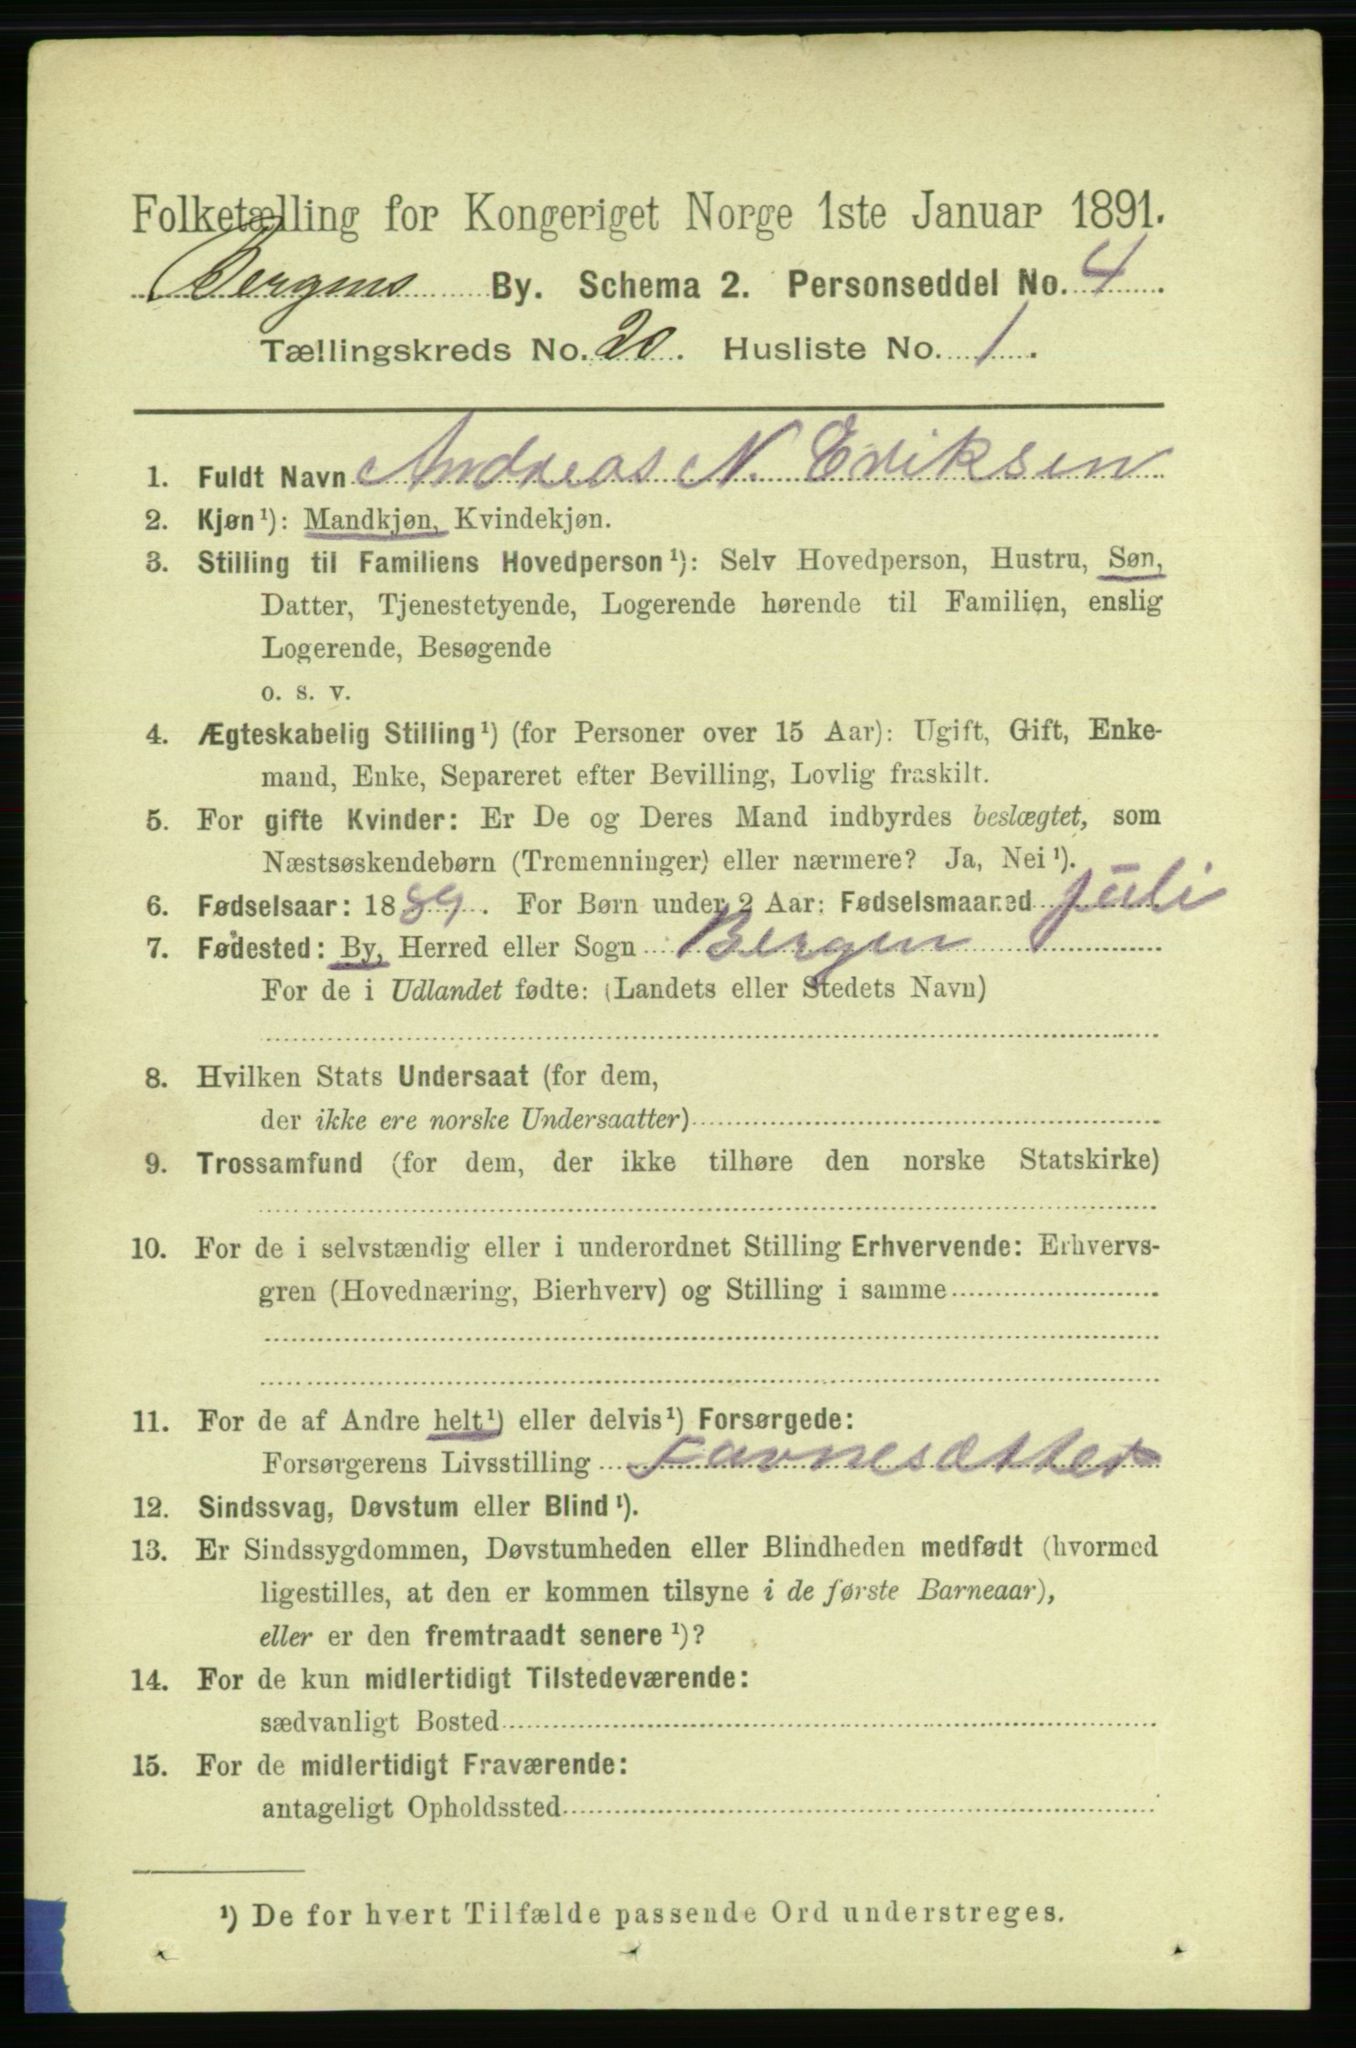 Folketælling for Kongeriget Norge 1ste Januar 1891.
Bergens By. Schema 2. Personseddel No. 4.
Tællingskreds No. 20. Husliste No. 1.
1. Fuldt Navn Andreas N. Eriksen
2. Kjøn¹): Mandkjøn, Kvindekjøn.
3. Stilling til Familiens Hovedperson¹): Selv Hovedperson, Hustru, Søn,
Datter, Tjenestetyende, Logerende hørende til Familien, enslig
Logerende, Besøgende
o. s. v.
4. Ægteskabelig Stilling¹) (for Personer over 15 Aar): Ugift, Gift, Enke-
mand, Enke, Separeret efter Bevilling, Lovlig fraskilt.
5. For gifte Kvinder: Er De og Deres Mand indbyrdes beslægtet, som
Næstsøskendebørn (Tremenninger) eller nærmere? Ja, Nei¹).
6. Fødselsaar: 1889. For Børn under 2 Aar: Fødselsmaaned Juli
7. Fødested: By, Herred eller Sogn Bergen
For de i Udlandet fødte: (Landets eller Stedets Navn)
8. Hvilken Stats Undersaat (for dem,
der ikke ere norske Undersaatter)
9. Trossamfund (for dem, der ikke tilhøre den norske Statskirke)
10. For de i selvstændig eller i underordnet Stilling Erhvervende: Erhvervs-
gren (Hovednæring, Bierhverv) og Stilling i samme
11. For de af Andre helt¹) eller delvis¹) Forsørgede:
Forsørgerens Livsstilling Favnesætter
12. Sindssvag, Døvstum eller Blind¹).
13. Er Sindssygdommen, Døvstumheden eller Blindheden medfødt (hvormed
ligestilles, at den er kommen tilsyne i de første Barneaar),
eller er den fremtraadt senere¹)?
14. For de kun midlertidigt Tilstedeværende:
sædvanligt Bosted
15. For de midlertidigt Fraværende:
antageligt Opholdssted
¹) De for hvert Tilfælde passende Ord understreges.